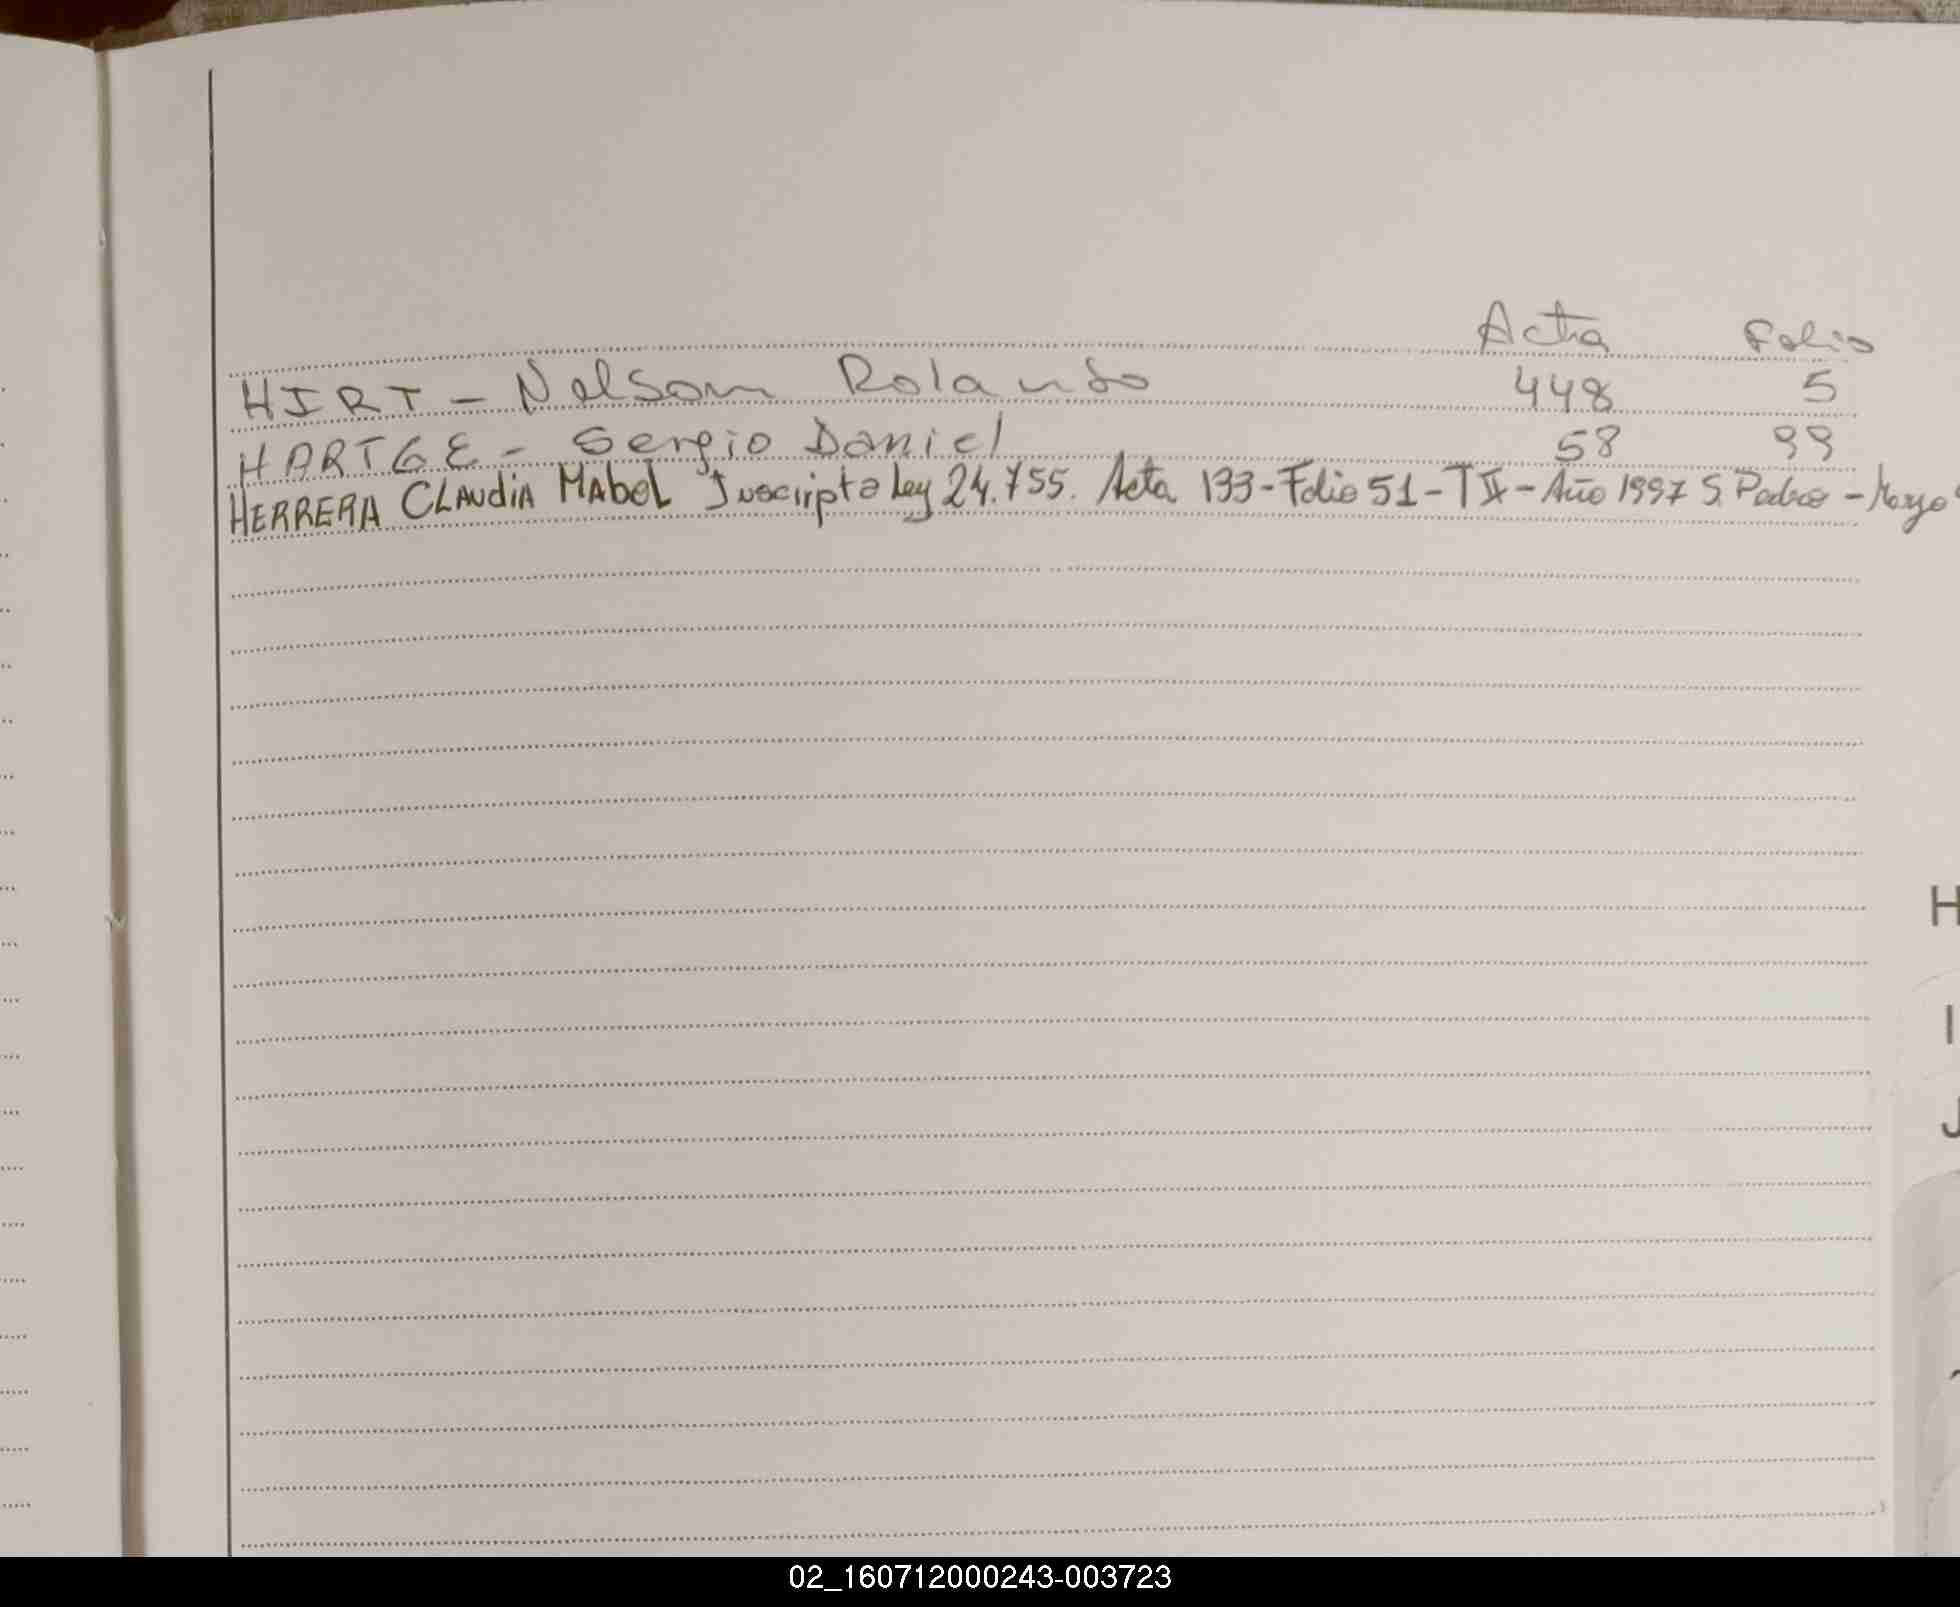 Acta Folio
HIRT - Nelson Rolando 448 5
HARTGE - Sergio Daniel 58 99
HERRERA CLAUDIA MABEL Inscripta Ley 24.755. Acta 133 - Folio 51 - T II - Año 1997 S. Pedro - Mayo
H
I
J
02_160712000243-003723